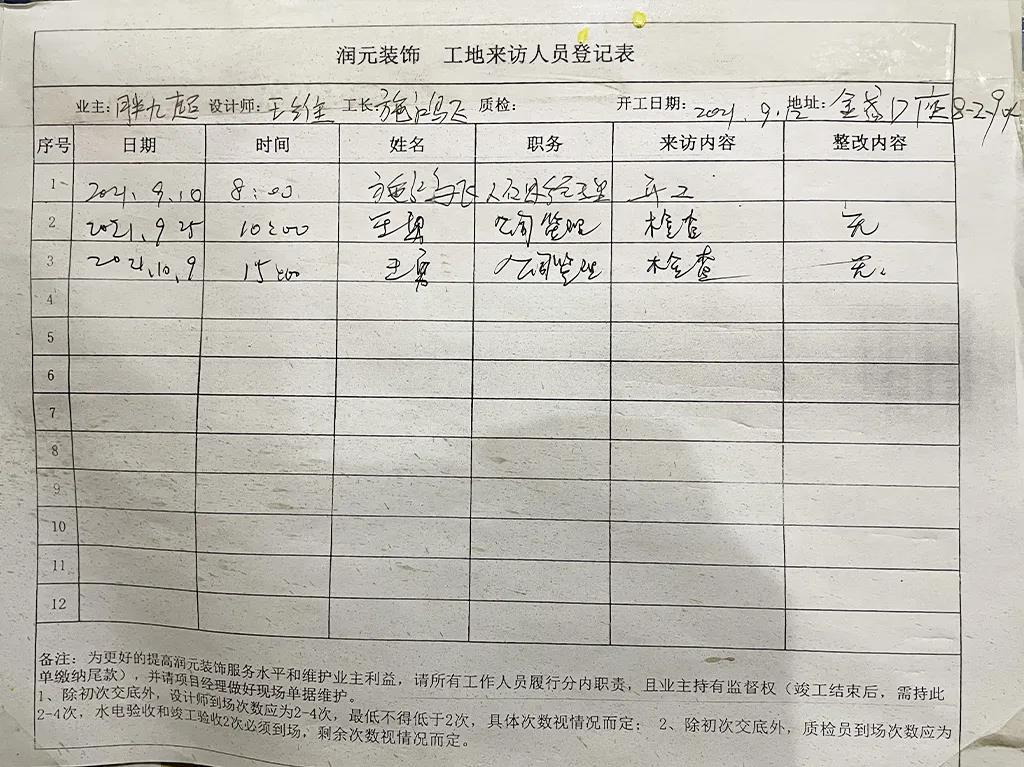 润元装饰 工地来访人员登记表
业主: 胖九超 设计师: 王维 工长: 施鸿飞 质检: 开工日期: 2021.9.10 地址: 金茂 D座8-2-902
序号 日期 时间 姓名 职务 来访内容 整改内容
1 2021.9.10 8:00 施鸿飞 经理 开工
2 2021.9.25 10:00 王勇 公司监理 检查 无
3 2021.10.9 15:00 王勇 公司监理 检查 无
4
5
6
7
8
9
10
11
12
备注: 为更好的提高润元装饰服务水平和维护业主利益, 请所有工作人员履行分内职责, 且业主持有监督权(竣工结束后, 需持此
单缴纳尾款), 并请项目经理做好现场单据维护。
1、除初次交底外, 设计师到场次数应为2-4次, 最低不得低于2次, 具体次数视情况而定; 2、除初次交底外, 质检员到场次数应为
2-4次, 水电验收和竣工验收2次必须到场, 剩余次数视情况而定。